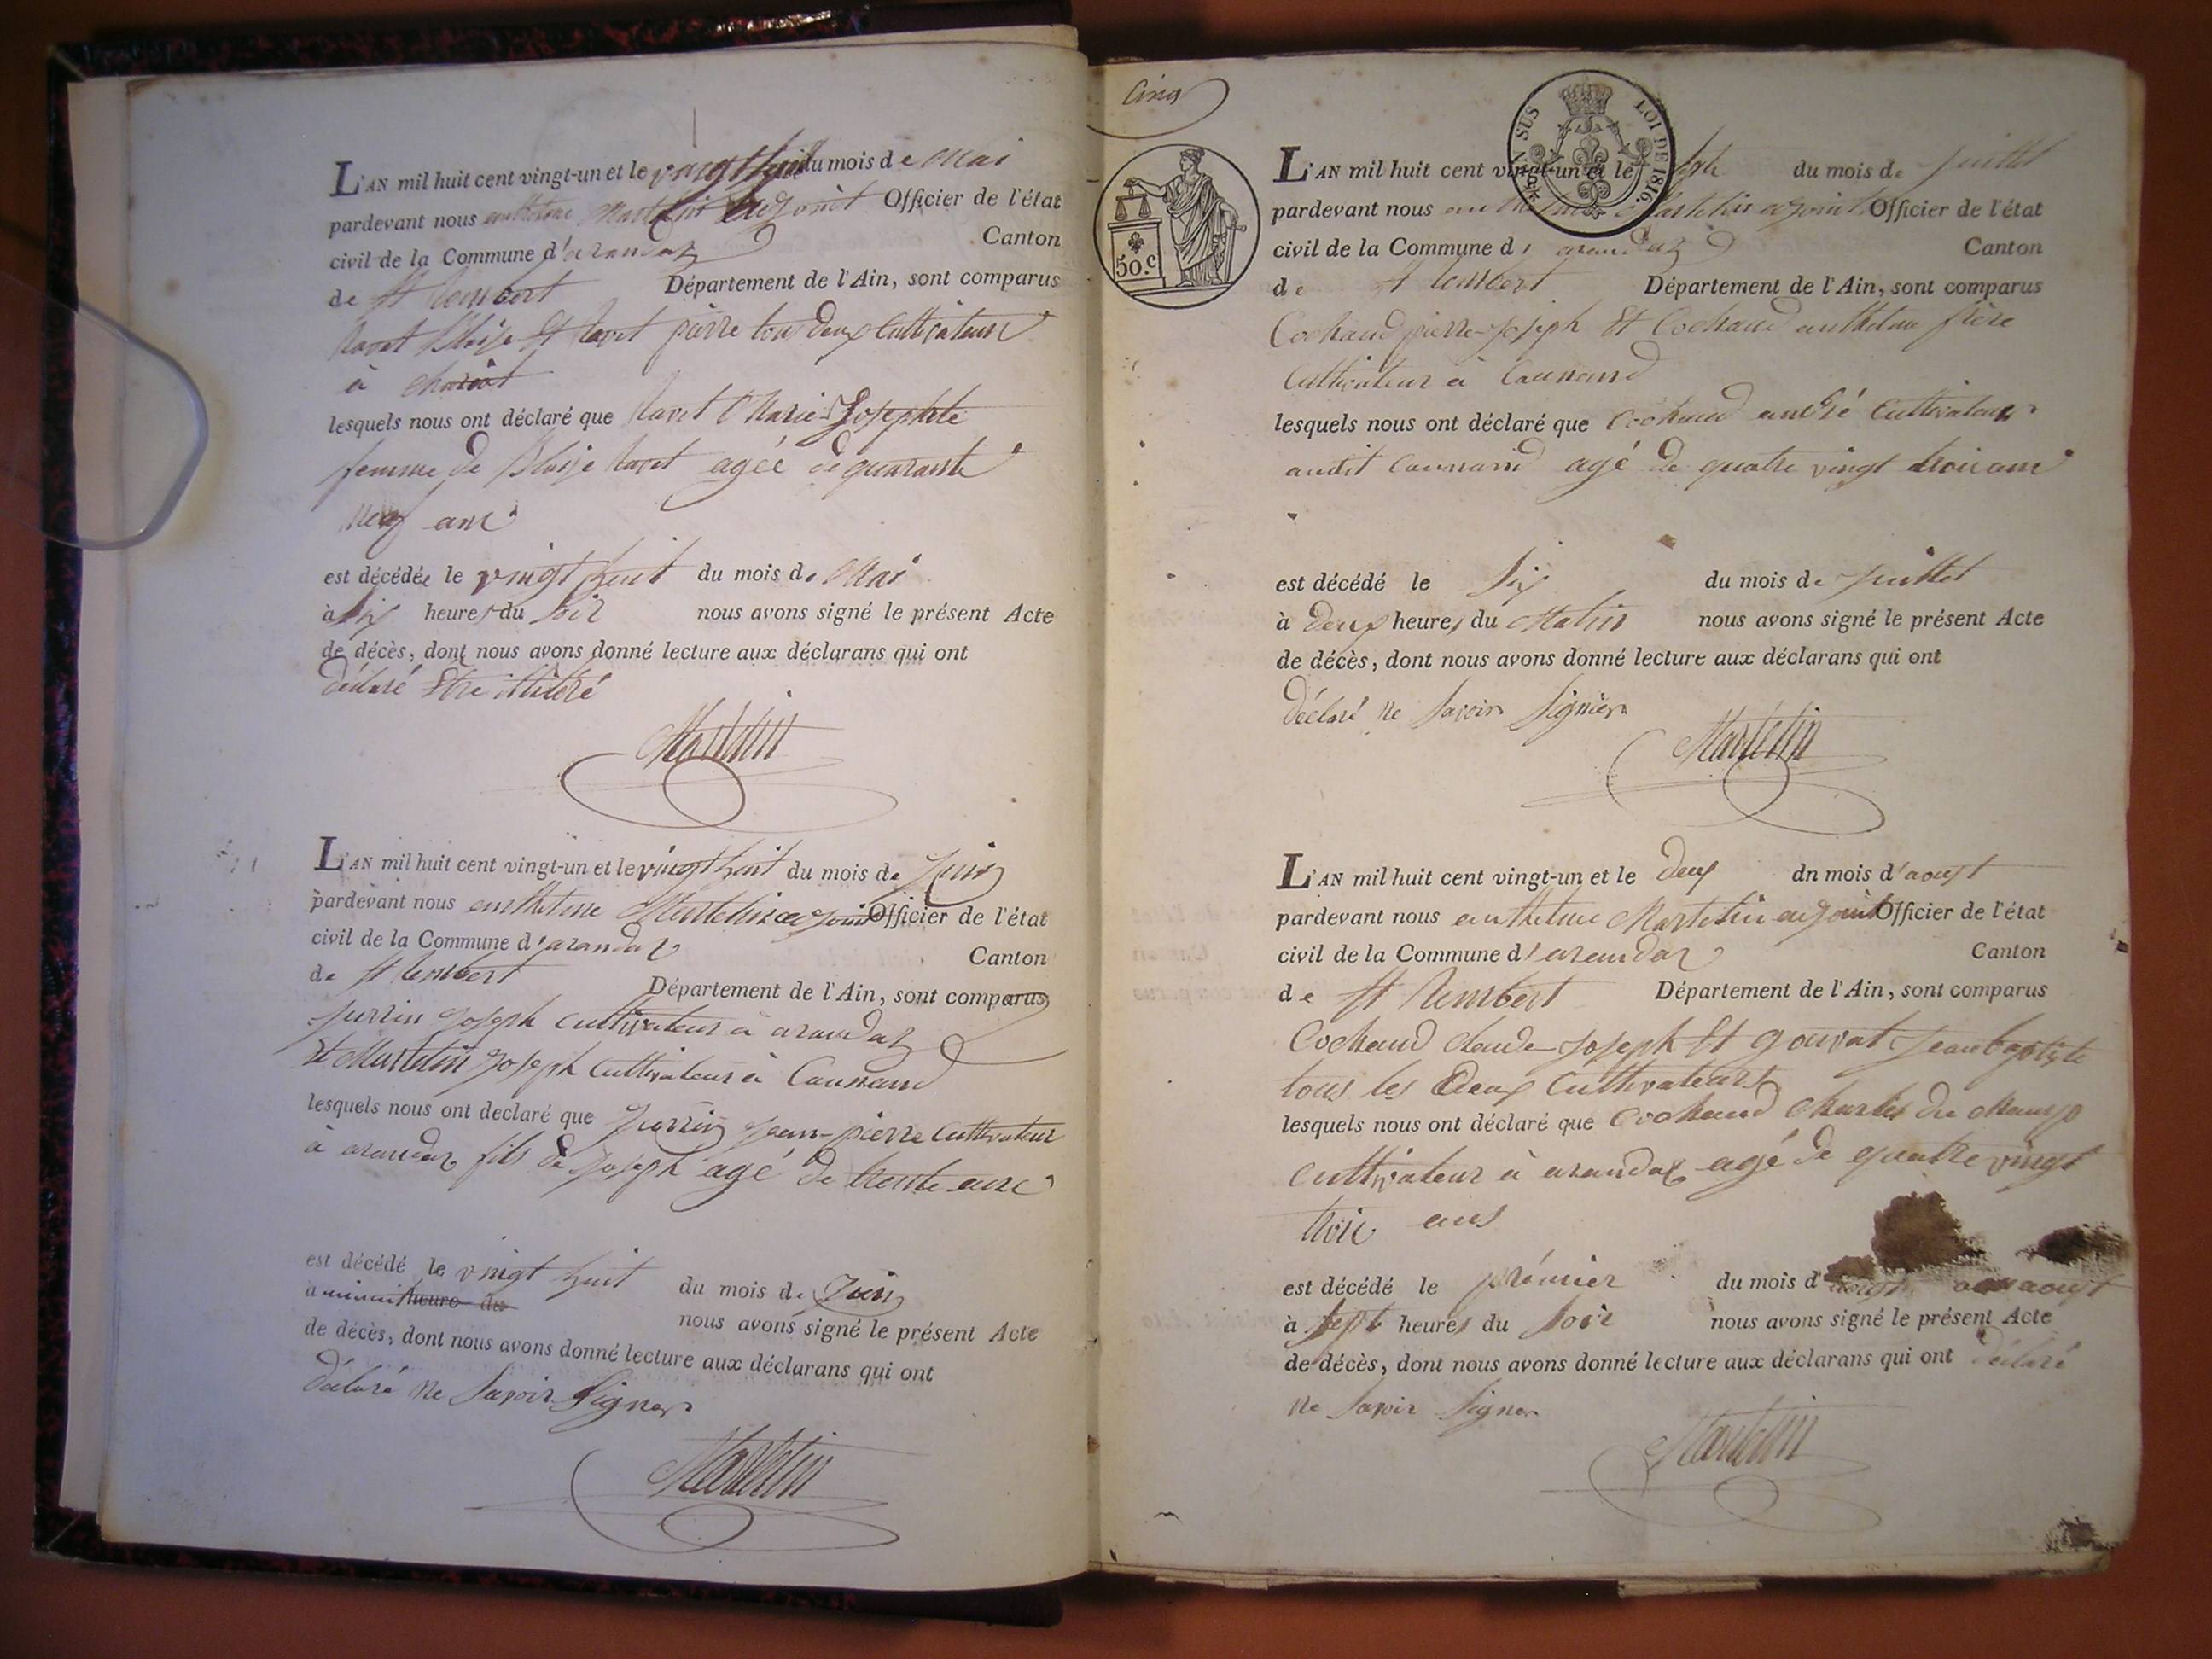 L'AN mil huit cent vingt-un et le vingt huit du mois de Mai
pardevant nous anthelme Martelin adjoint Officier de l'état
civil de la Commune d'arandaz Canton
de St Rembert Département de l'Ain, sont comparus
Ravet Blaise Et Ravet pierre tou deux Cultivateurs
à
lesquels nous ont déclaré que Ravet Marie Josephte
femme de Blaise Ravet agée de quarante
neuf ans
est décédée le vingt huit du mois de Mai
à six heures du soir nous avons signé le présent Acte
de décès, dont nous avons donné lecture aux déclarans qui ont
déclaré Etre illitéré
Martelin
L'AN mil huit cent vingt-un et le vingt huit du mois de Juin
pardevant nous anthelme Martelin adjoint Officier de l'état
civil de la Commune d'arandaz
Canton
de St Rembert Département de l'Ain, sont comparus
Joseph cultivateur à arandaz
Et Martelin Joseph Cultivateur à Caunand
lesquels nous ont declaré que jean-pierre Cultivateur
à arandaz fils de Joseph agé de trente ans
est décédé le vingt huit du mois de Juin
a minuit heure du nous avons signé le présent Acte
de décès, dont nous avons donné lecture aux déclarans qui ont
déclaré ne savoir signer
Martelin
Cinq
50.c
EN SUS LOI DE 1816.
L'AN mil huit cent vingt-un et le sept du mois de Juillet
pardevant nous anthelme Martelin adjoint Officier de l'état
civil de la Commune d'arandaz Canton
de St Rembert Département de l'Ain, sont comparus
Cochaud pierre-Joseph Et Cochaud anthelme frère
Cultivateur à Caunand
lesquels nous ont déclaré que Cochaud andré Cultivateur
audit Caunand agé de quatre vingt trois ans
est décédé le six du mois de Juillet
à deux heures du Matin nous avons signé le présent Acte
de décès, dont nous avons donné lecture aux déclarans qui ont
déclaré ne savoir signer
Martelin
L'AN mil huit cent vingt-un et le deux dn mois d'aoust
pardevant nous anthelme Martelin adjoint Officier de l'état
civil de la Commune d'arandaz Canton
de St Rembert Département de l'Ain, sont comparus
Cochaud claude-Joseph Et gouvat Jean baptiste
tous les Deux Cultivateurs
lesquels nous ont déclaré que Cochaud Charles du
cultivateur à arandaz agé de quatre vingt
trois ans
est décédé le premier du mois d'aoust aoust
à sept heures du soir nous avons signé le présent Acte
de décès, dont nous avons donné lecture aux déclarans qui ont déclaré
ne savoir signer
Martelin